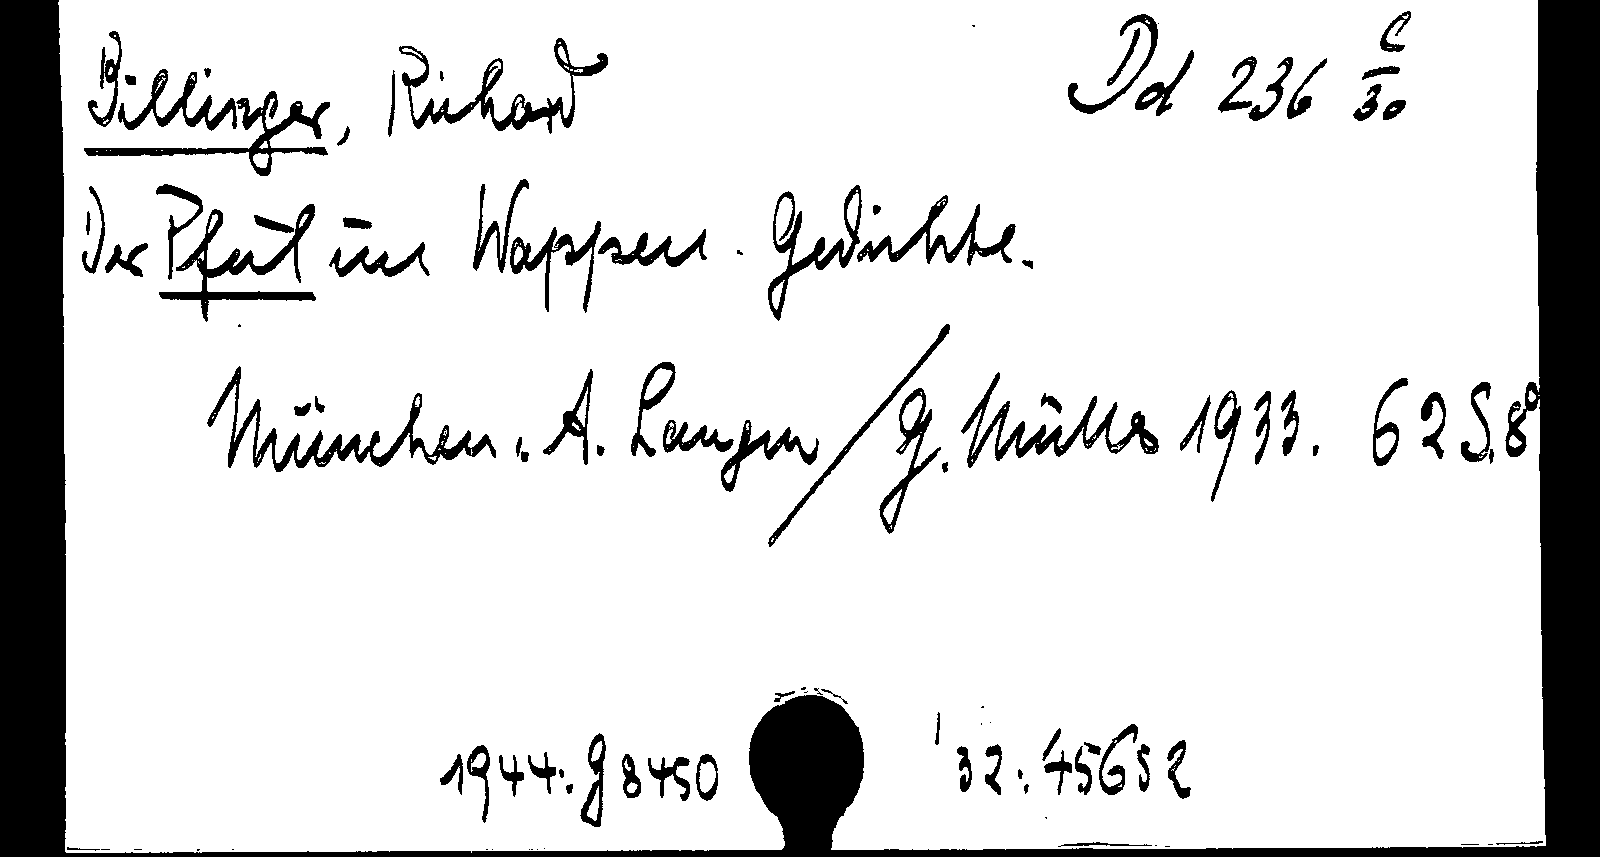 Billinger, Richard Dd 236 C/30
Der Pfeil im Wappen. Gedichte.
München: A. Langen / G. Müller 1933. 62 S. 8°
1944. g 8450 32. 45652